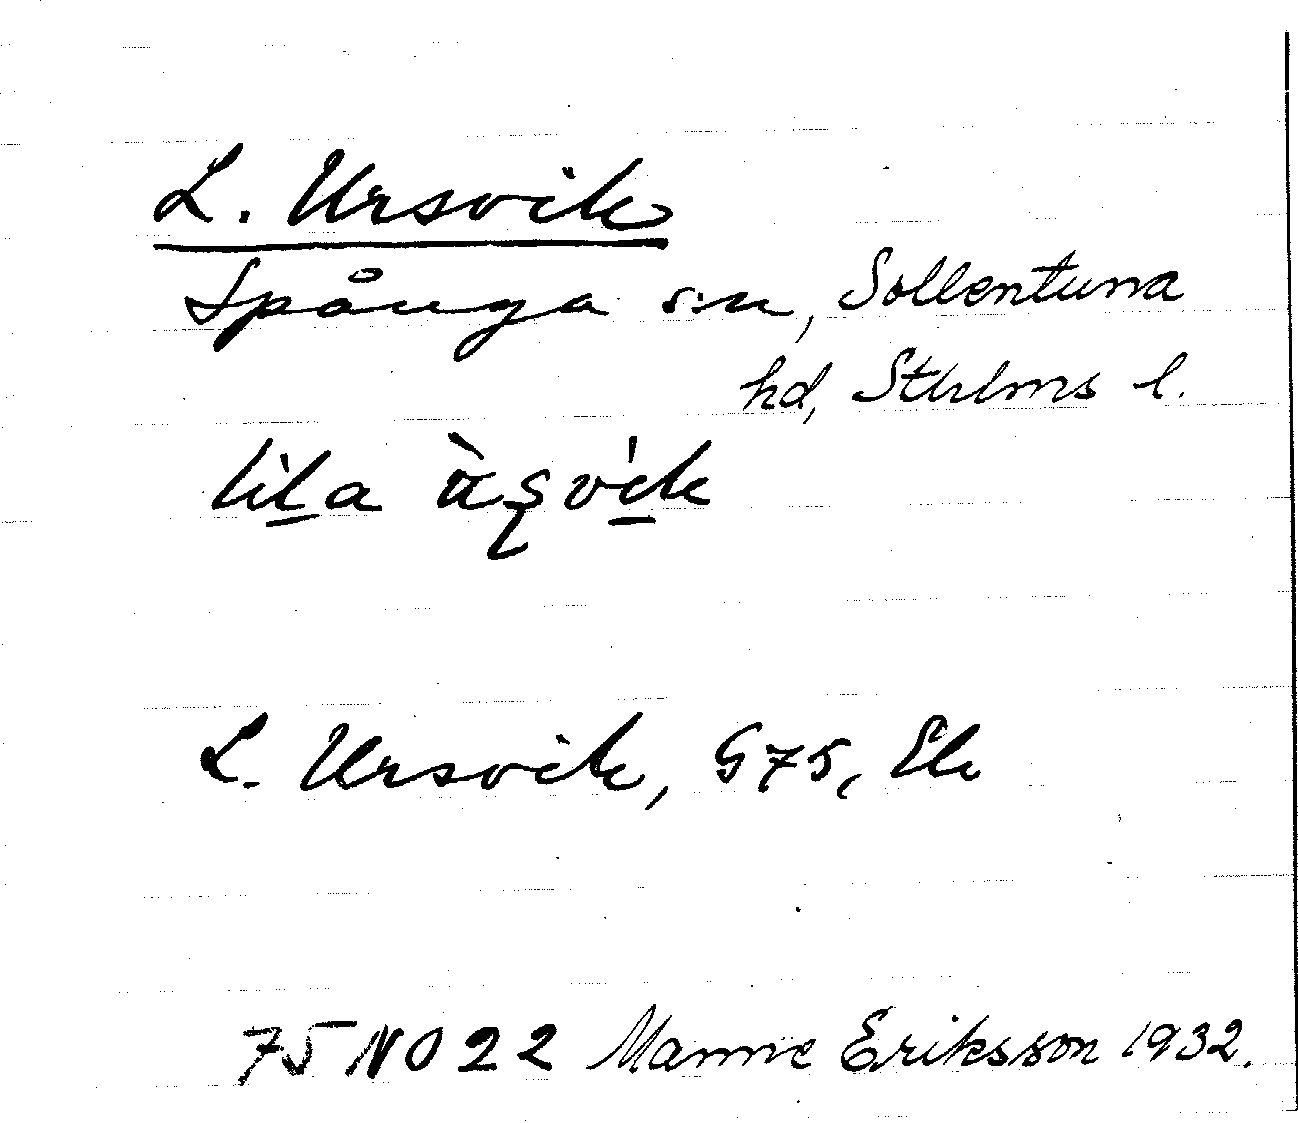 L. Ursvik
Spånga sn, Sollentuna
hd, Sthlms l.
L. Ursvik, G75, Ek
75 NO 22 Manne Eriksson 1932.